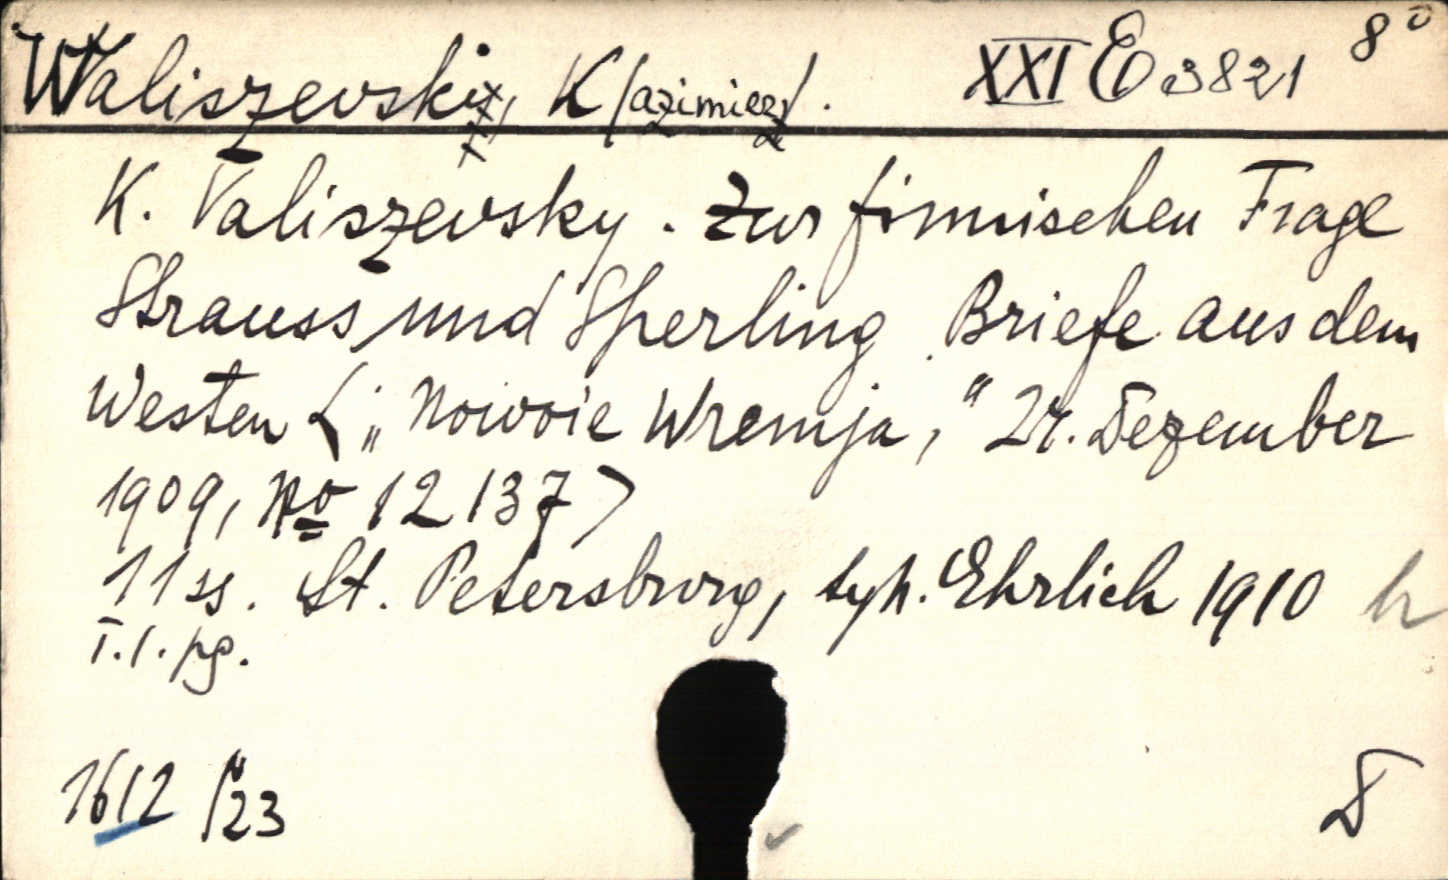 Waliszewski, K/azimierz/. XXI E 3821 8°
K. Valiszevsky. Zur finnischen Frage
Strauss und Sperling Briefe aus dem
Westen <„Nowoie Wremja,“ 24. Dezember
1909, No 12137>
11 ss. St. Petersburg, typ. Ehrlich 1910 h
T. 1. pg.
1612 /23
D